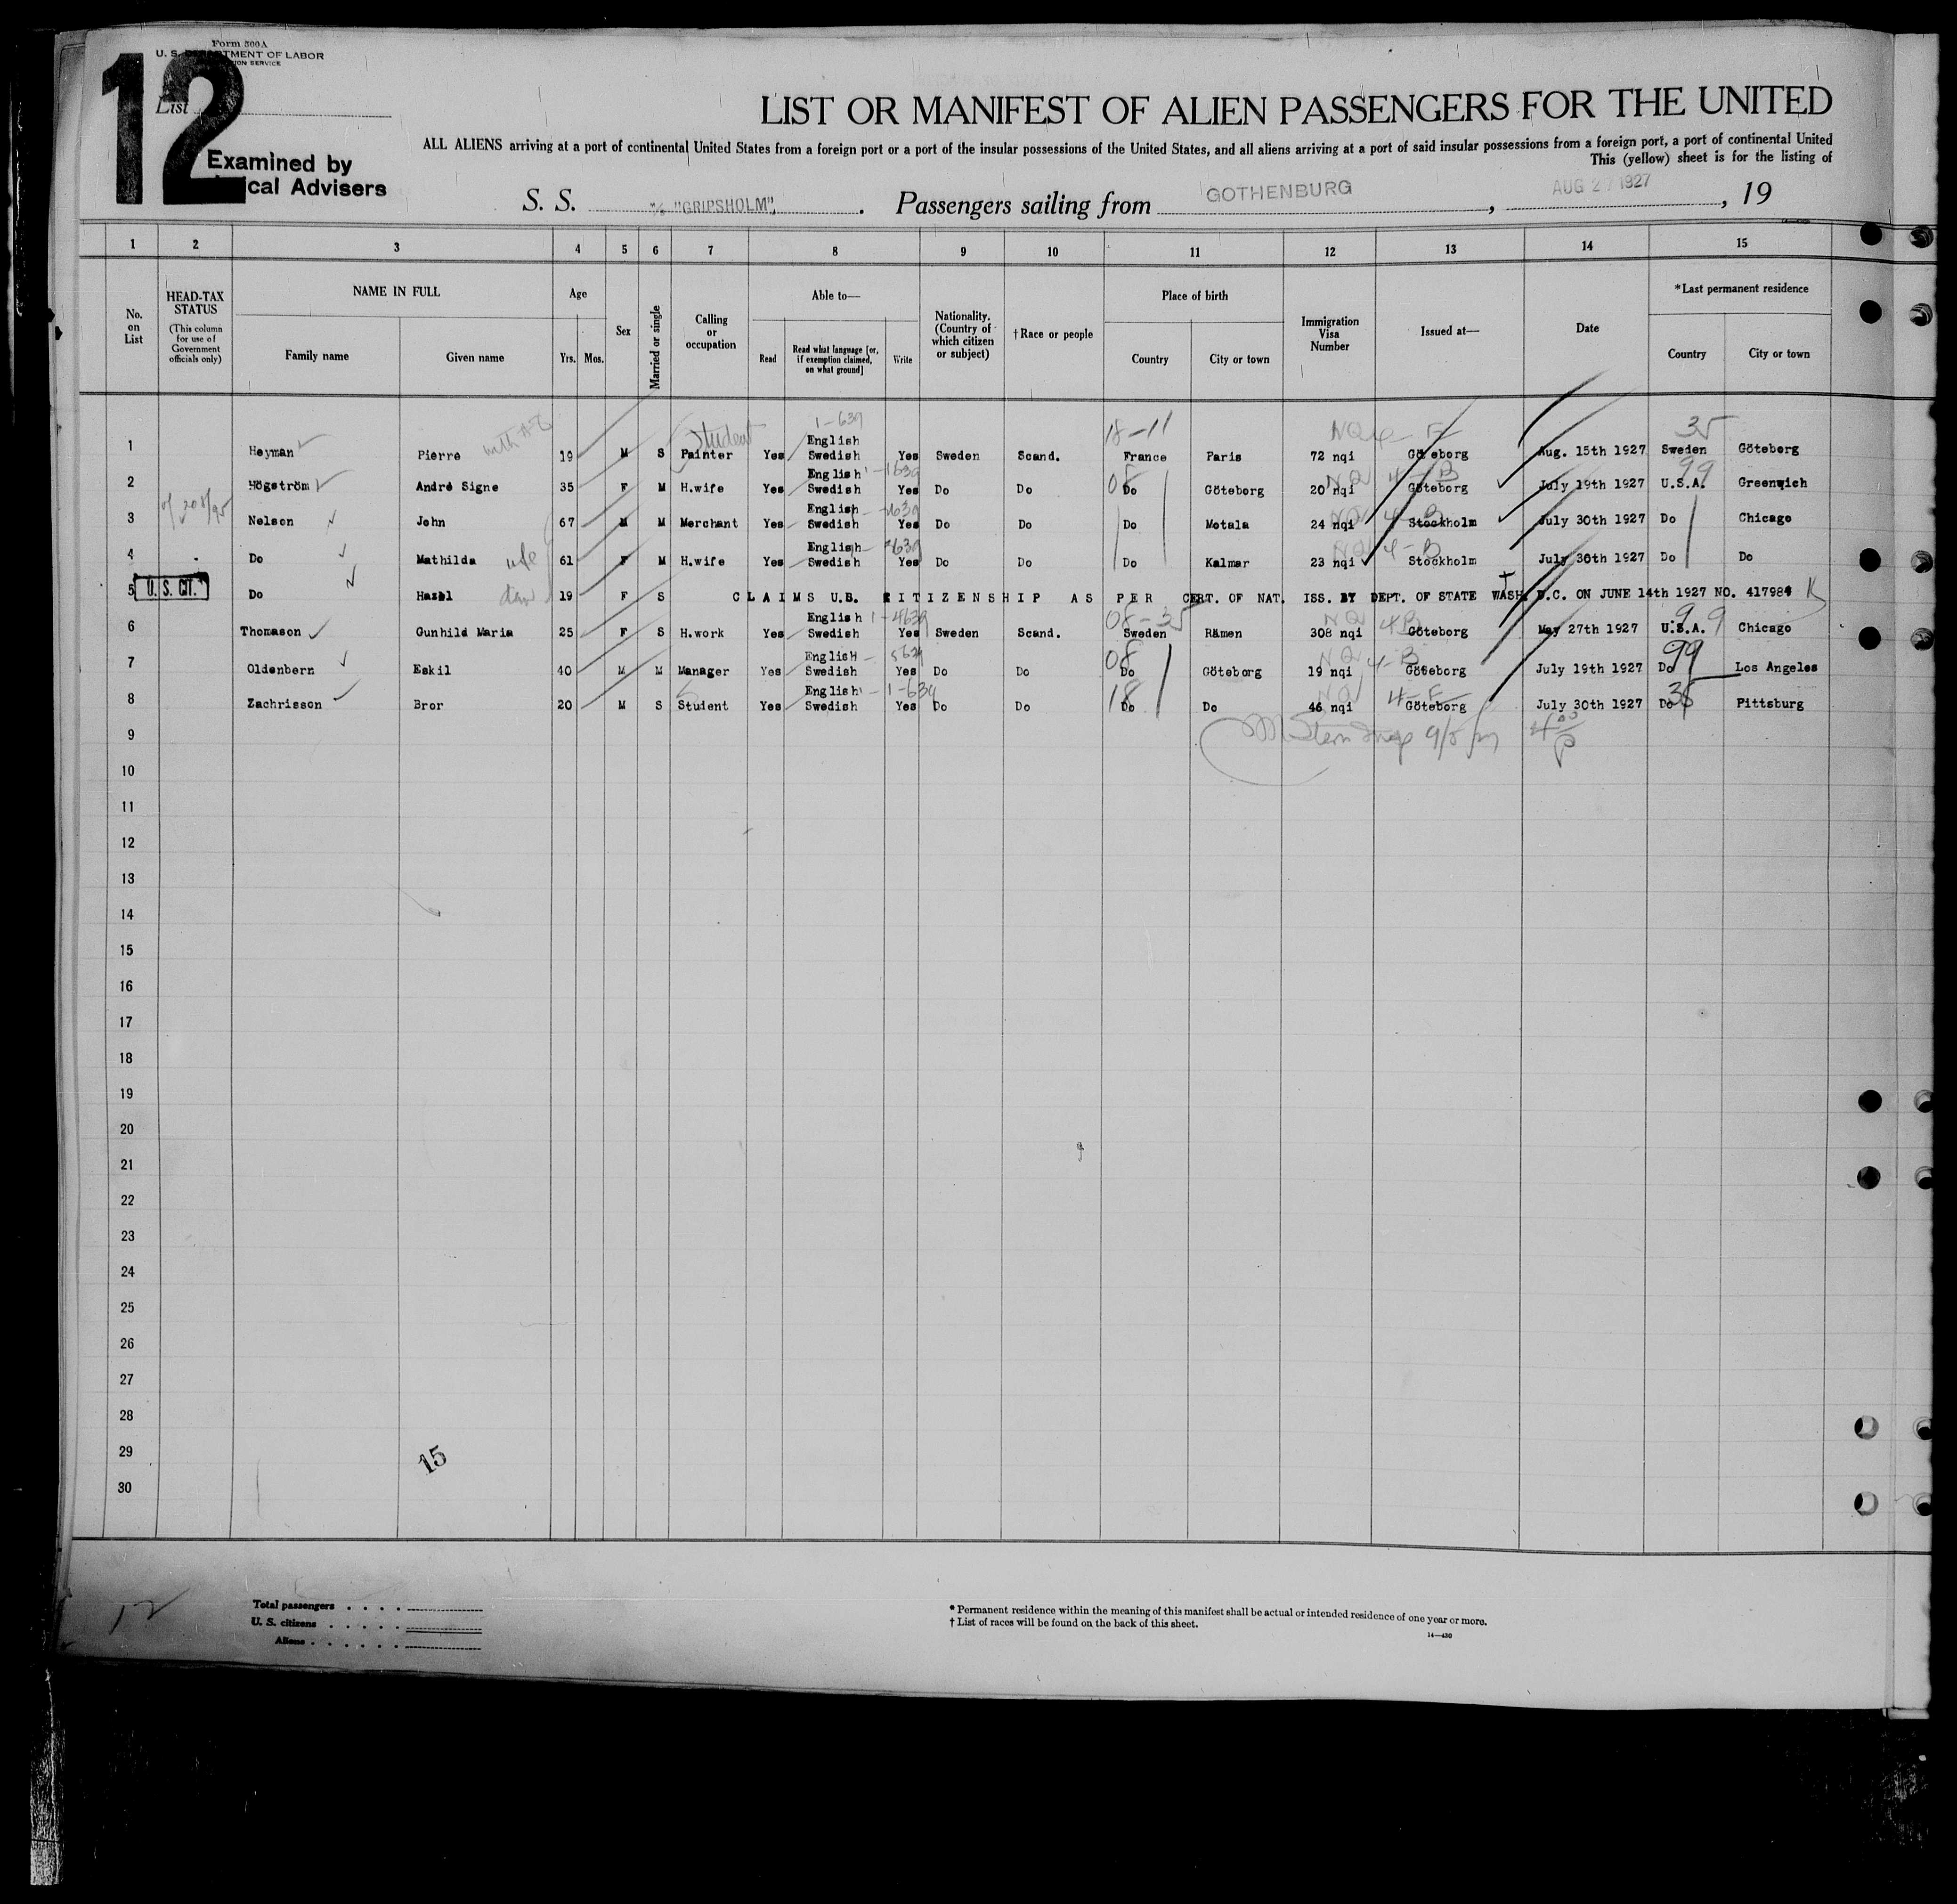 Form 500A
U. S. DEPARTMENT OF LABOR
12
List
Examined by
Advisers
LIST OR MANIFEST OF ALIEN PASSENGERS FOR THE UNITED
ALL ALIENS arriving at a port of continental United States from a foreign port or a port of the insular possessions of the United States, and all aliens arriving at a port of said insular possessions from a foreign port, a port of continental United
This (yellow) sheet is for the listing of
S. S. "GRIPSHOLM", . Passengers sailing from GOTHENBURG , AUG 27 1927 , 19
1 2 3 4 5 6 7 8 9 10 11 12 13 14 15
No. on List
HEAD-TAX STATUS (This column for use of Government officials only)
NAME IN FULL
Family name Given name
Age
Yrs. Mos.
Sex
Married or single
Calling or occupation
Able to—
Read Read what language [or, if exemption claimed, on what ground] Write
Nationality. (Country of which citizen or subject)
†Race or people
Place of birth
Country City or town
Immigration Visa Number
Issued at—
Date
*Last permanent residence
Country City or town
student 1-639 18-11 35
1 Heyman Pierre 19 M S Painter Yes English Swedish Yes Sweden Scand. France Paris 72 nqi Göteborg Aug. 15th 1927 Sweden Göteborg
2 Högström André Signe 35 F M H.wife Yes English Swedish Yes Do Do Do Göteborg 20 nqi Göteborg July 19th 1927 U.S.A. Greenwich
3 Nelson John 67 M M Merchant Yes English Swedish Yes Do Do Do Motala 24 nqi Stockholm July 30th 1927 Do Chicago
4 Do Mathilda wife 61 F M H.wife Yes English Swedish Yes Do Do Do Kalmar 23 nqi Stockholm July 30th 1927 Do Do
5 U. S. CIT. Do Hazel dau 19 F S CLAIMS U.S. CITIZENSHIP AS PER CERT. OF NAT. ISS. BY DEPT. OF STATE WASH. D.C. ON JUNE 14th 1927 NO. 417984
6 Thomason Gunhild Maria 25 F S H.work Yes English Swedish Yes Sweden Scand. Sweden Rämen 308 nqi Göteborg May 27th 1927 U.S.A. Chicago
7 Oldenbern Eskil 40 M M Manager Yes English Swedish Yes Do Do Do Göteborg 19 nqi Göteborg July 19th 1927 Do Los Angeles
8 Zachrisson Bror 20 M S Student Yes English Swedish Yes Do Do Do Do 46 nqi Göteborg July 30th 1927 Do Pittsburg
9
10
11
12
13
14
15
16
17
18
19
20
21
22
23
24
25
26
27
28
29
30
15
12
Total passengers
U. S. citizens
Aliens
* Permanent residence within the meaning of this manifest shall be actual or intended residence of one year or more.
† List of races will be found on the back of this sheet.
14—430